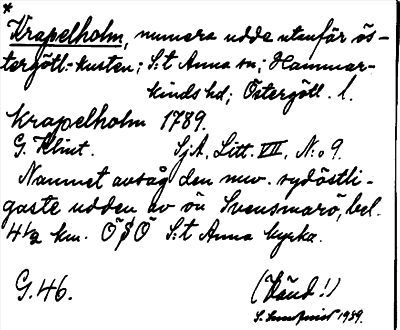 *
Krapelholm, numera udde utanför ös-
tergötl.-kusten; S:t Anna sn; Hammar-
kinds hd; Östergötl. l.
Krapelholm 1789.
G. Klint. SjA, Litt. VII, N:o 9.
Namnet avsåg den nuv. sydöstli-
gaste udden av ön Svensmarö, bel.
4½ km. ÖSÖ S:t Anna kyrka.
G.46. (Vänd!)
1939.